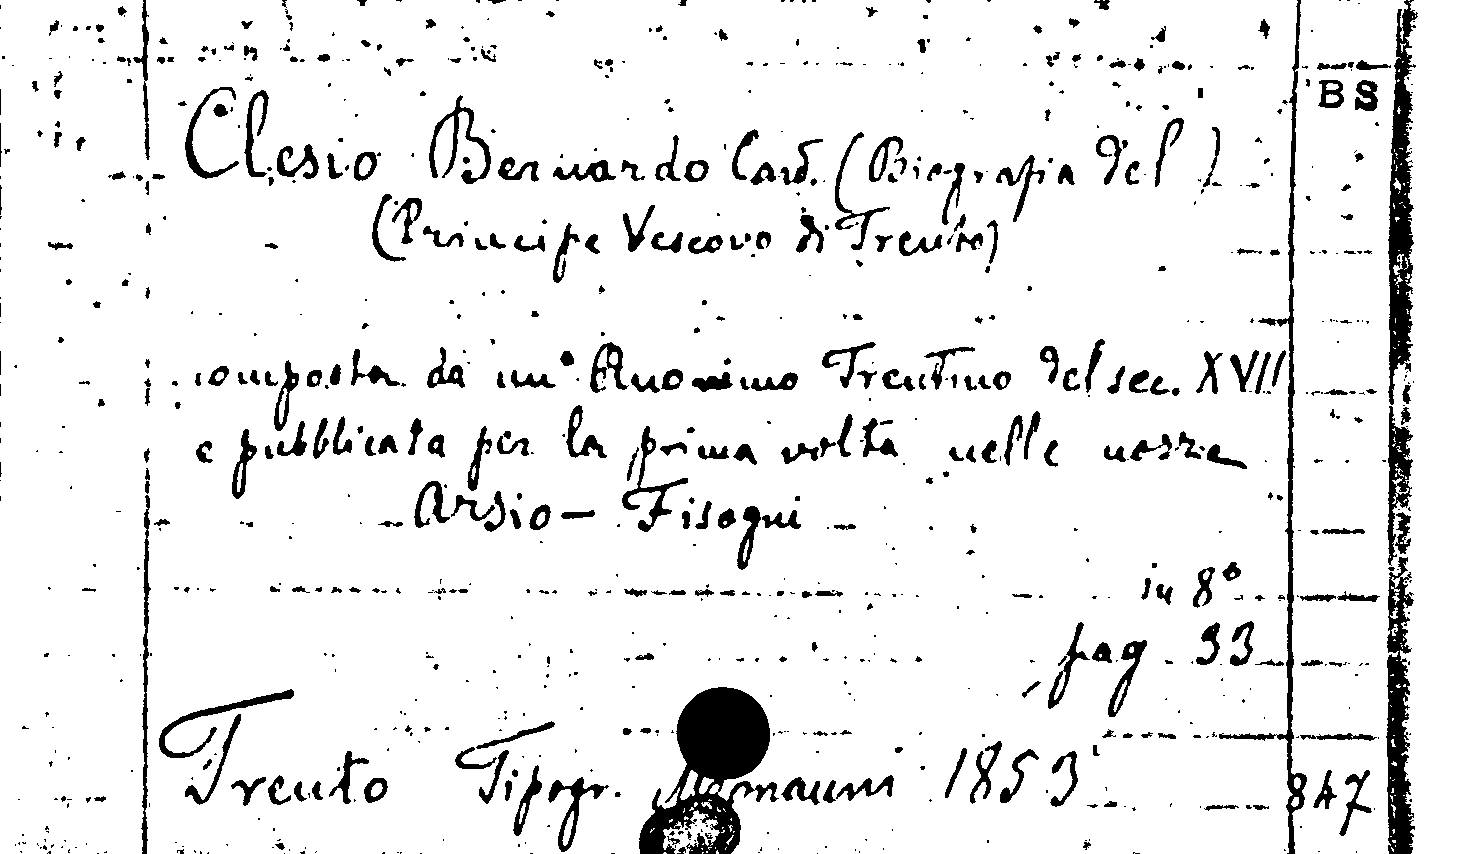 BS
Clesio Bernardo Card. (Biografia del)
(Principe Vescovo di Trento)
composta da un° Anonimo Trentino del sec. XVII
e pubblicata per la prima volta nelle nozze
Arsio - Fisogni
in 8°
pag. 33
Trento Tipogr. 1853
847